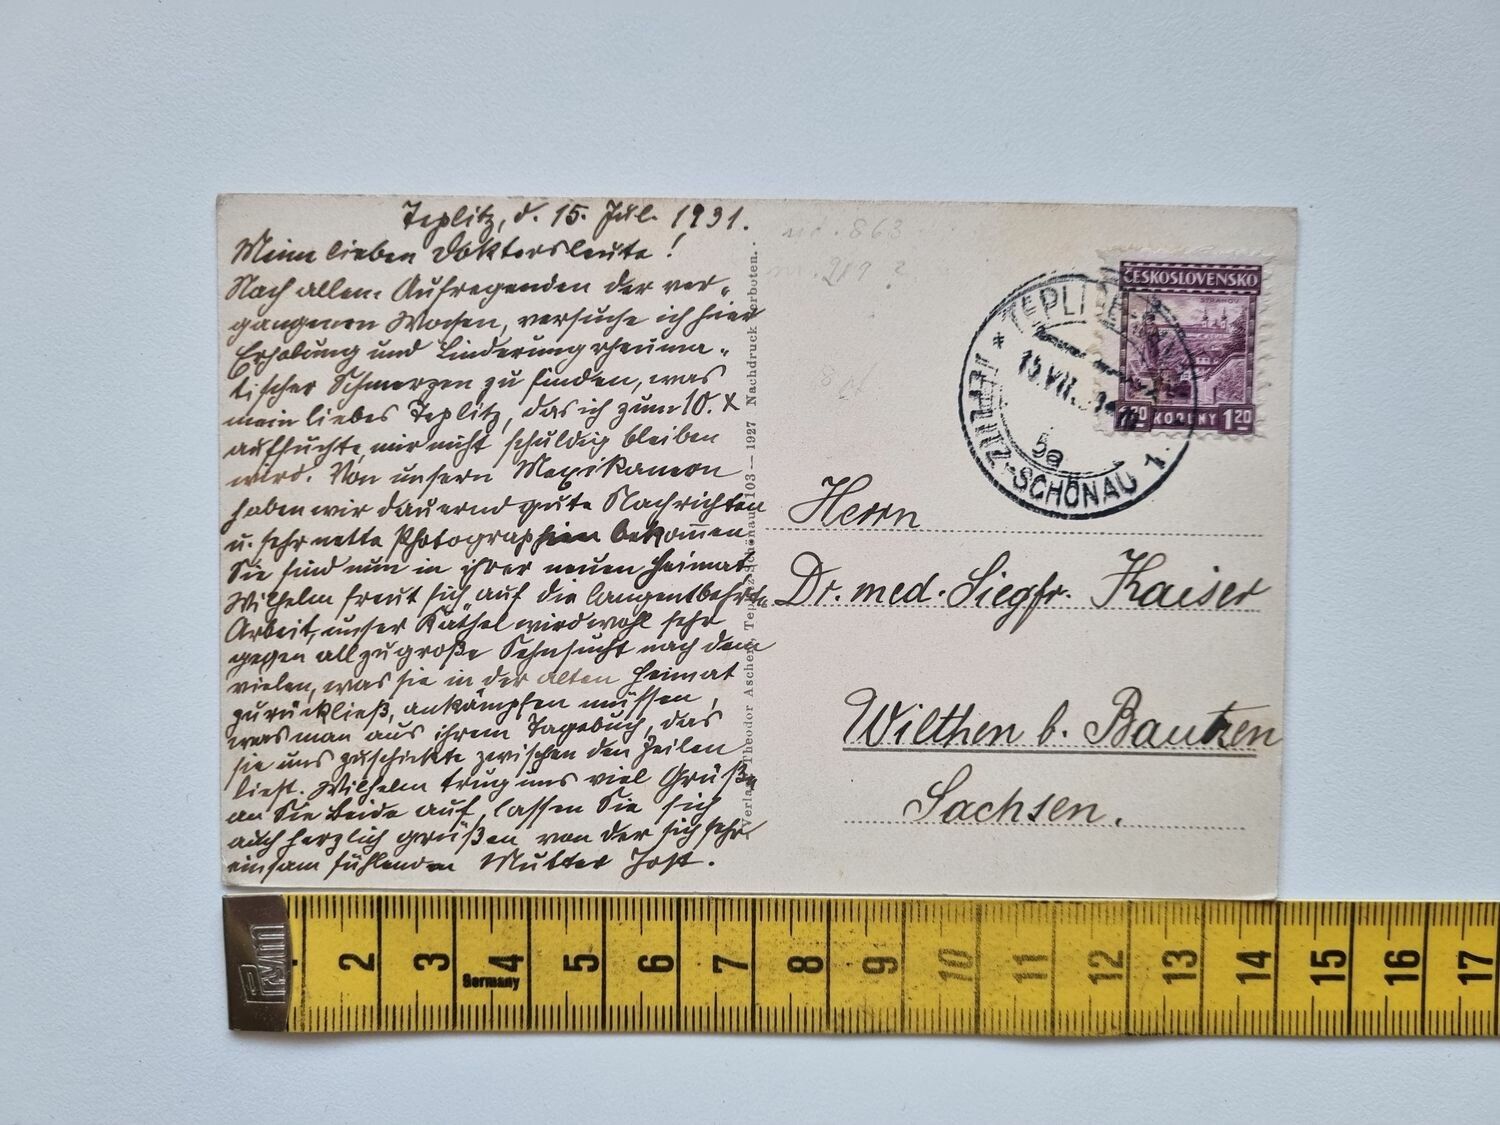 Teplitz, d. 15. Jul. 1931.
Meine lieben Doktorsleute!
Nach allen Aufregenden der ver-
gangenen Wochen, versuche ich hier
Erholung und Linderung rheuma-
tischer Schmerzen zu finden, was
mein liebes Teplitz, das ich zum 10. X
aufsuchte, mir nicht schuldig bleiben
wird. Von unsern Mexikanern
haben wir dauernd gute Nachrichten
u. sehr nette Photographien bekommen
Sie sind nun in ihrer neuen Heimat
Wilhelm freut sich auf die langentbehrte
Arbeit, unser Käthel wird wohl sehr
gegen allzugroße Sehnsucht nach dem
vielen, was sie in der alten Heimat
zurückließ, ankämpfen müssen,
was man aus ihrem Tagebuch, das
sie uns zuschickte zwischen den Zeilen
liest. Wilhelm trug uns viel Grüße
an Sie Beide auf, lassen Sie sich
auch herzlich grüßen von der sich sehr
einsam fühlenden Mutter Jost.
Verlag Theodor Ascher, Teplitz-Schönau 103 — 1927 Nachdruck verboten.
863
ČESKOSLOVENSKO
STRAHOV
1.20 KORUNY 1.20
TEPLICE
15.VII.31
5a
TEPLITZ-SCHÖNAU 1.
Herrn
Dr. med. Siegfr. Kaiser
Wilthen b. Bautzen
Sachsen.
Prym
2 3 4 5 6 7 8 9 10 11 12 13 14 15 16 17
Germany